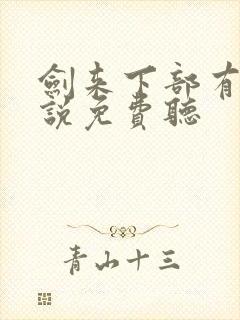 劍来下部有
說免費聽
青山十三